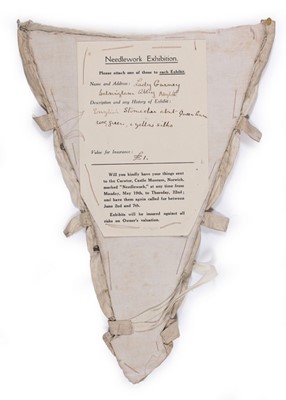 Needlework Exhibition.
Please attach one of these to each Exhibit.
Name and Address: Lady Gurney
Walsingham Abbey Norfolk
Description and any History of Exhibit:
English Stomacher
green, + yellow silks
Value for Insurance:
£1.
Will you kindly have your things sent
to the Curator, Castle Museum, Norwich,
marked "Needlework," at any time from
Monday, May 19th, to Thursday, 22nd;
and have them again called for between
June 2nd and 7th.
Exhibits will be insured against all
risks on Owner's valuation.